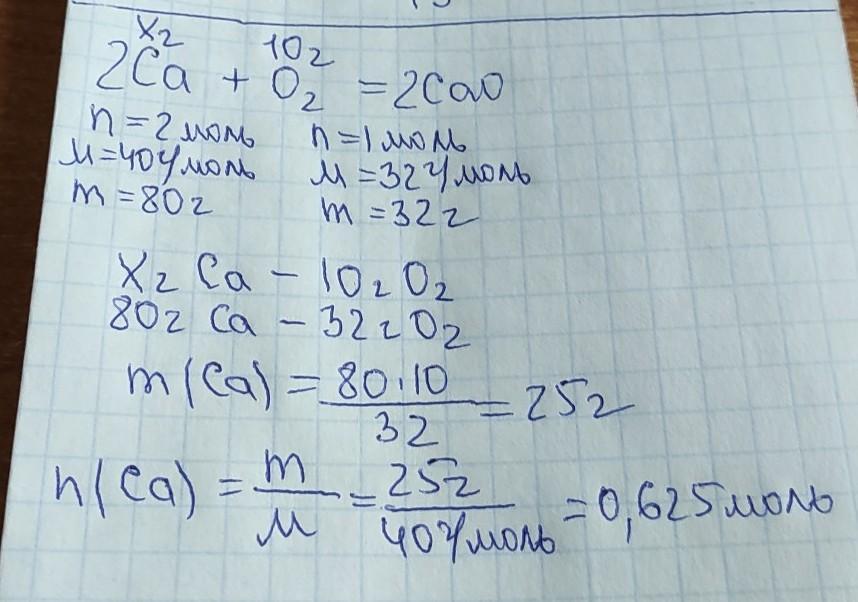 xг 10г
2Ca + O₂ = 2CaO
n = 2 моль n = 1 моль
M = 40 г/моль M = 32 г/моль
m = 80 г m = 32 г
xг Ca – 10г O₂
80г Ca – 32г O₂
m(Ca) = 80·10 / 32 = 25г
n(Ca) = m / M = 25г / 40 г/моль = 0,625 моль